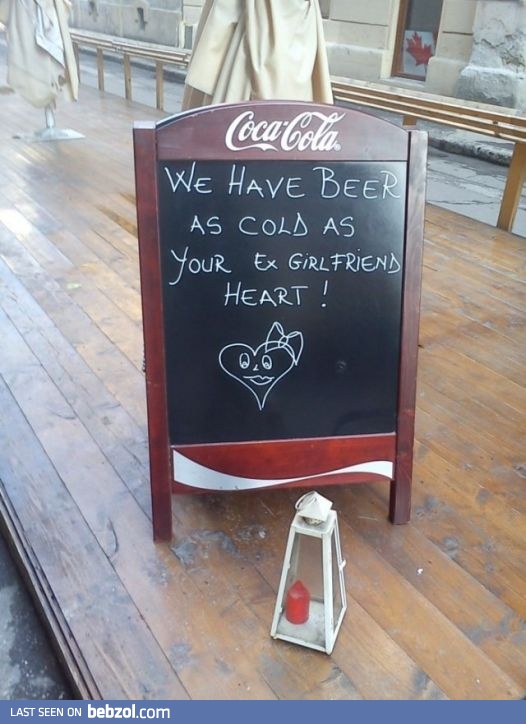 Coca-Cola
WE HAVE BEER
AS COLD AS
YOUR EX GIRLFRIEND
HEART !
LAST SEEN ON bebzol.com